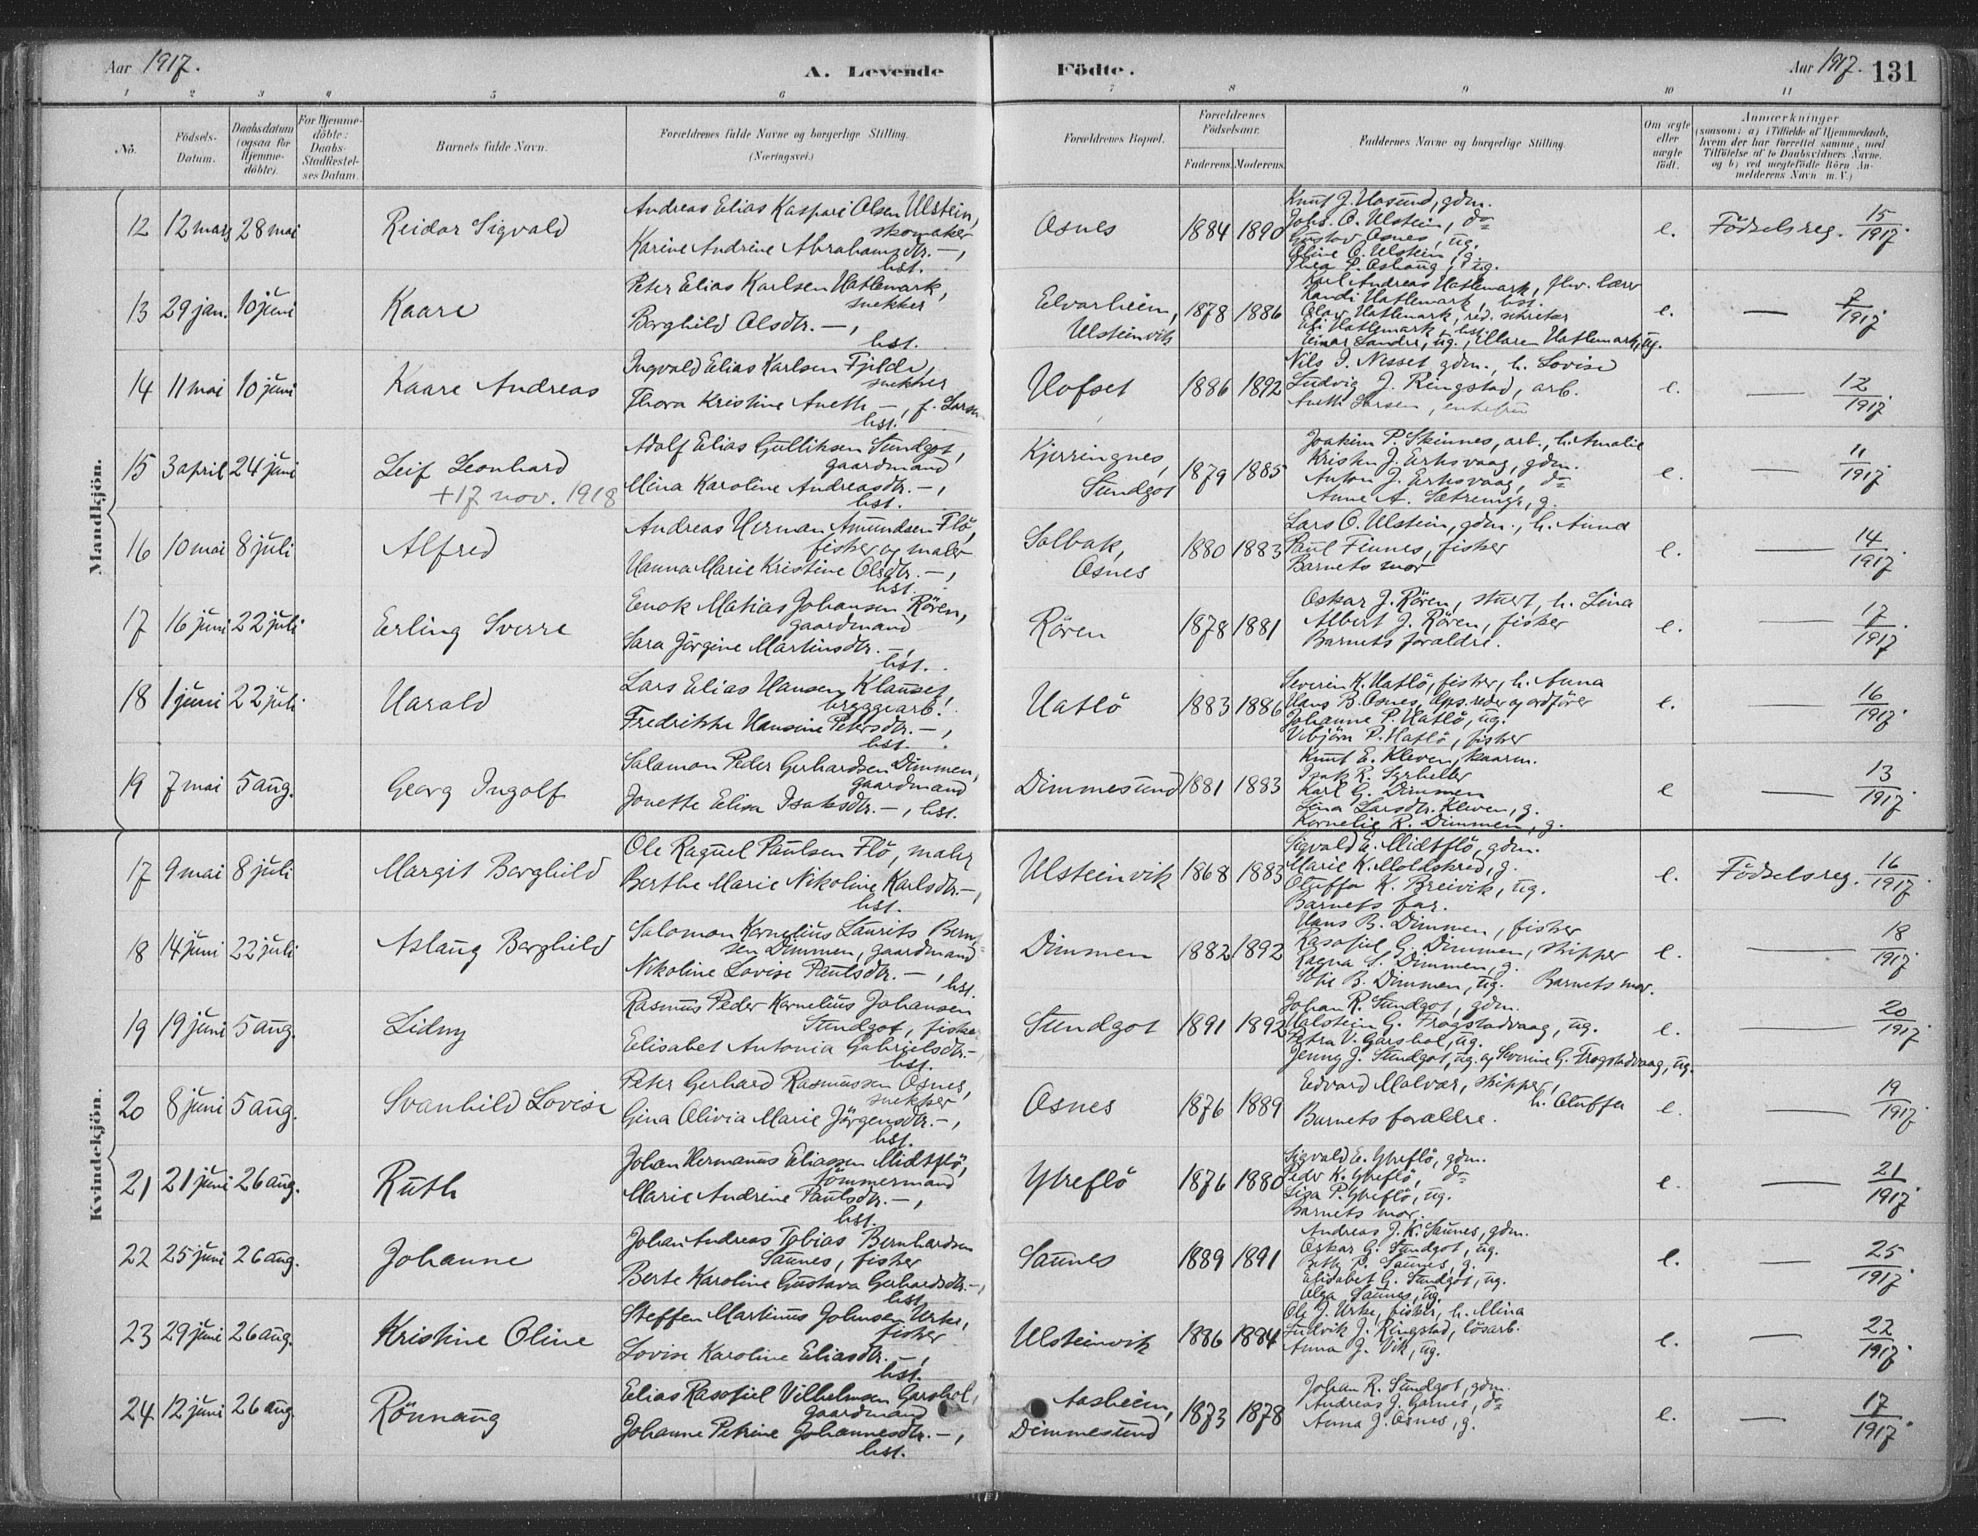 Aar 1917.
A. Levende
Födte.
Aar 1917. 131
1 2 3 4 5 6 7 8 9 10 11
No.
Födsels-Datum.
Daabsdatum (ogsaa for Hjemme-döbte).
For Hjemme-döbte: Daabs-Stadfæstel-ses Datum.
Barnets fulde Navn.
Forældrenes fulde Navne og borgerlige Stilling.
(Næringsvei.)
Forældrenes Bopæl.
Forældrenes Födselsaar.
Faderens. Moderens.
Faddernes Navne og borgerlige Stilling.
Om ægte eller uægte födt.
Anmærkninger
(saasom: a) i Tilfælde af Hjemmedaab,
hvem der har forrettet samme, med
Tilföielse af to Daabsvidners Navne,
og b) ved uægtefödte Börn An-
melderens Navn m. V.)
Mandkjön.
12 12 mars 28 mai Reidar Sigvald
Andreas Elias Kaspari Olsen Ulstein,
skomaker
Karine Andrine Abrahamsdtr. —,
hst.
Osnes 1884 1890
Knut J. Hasund, gdm.
Johs. O. Ulstein, do
Gustav Osnes, ug.
Oline O. Ulstein, g.
Thea P. Oshaug, ug.
e. Födselsreg. 15/1917.
13 29 jan. 10 juni Kaare
Peter Elias Karlsen Hatlemark,
snekker
Borghild Olsdtr. —,
hst.
Elvarheim,
Ulsteinvik
1878 1886
Karl Andreas Hatlemark, fhv. lærer
Randi Hatlemark, hst.
Olav Hatlemark, red. sekretær
Eli Hatlemark, hst.
Einar Sandri, ug., Ellaren Hatlemark, ug.
e. — 7/1917.
14 11 mai 10 juni Kaare Andreas
Ingvald Elias Karlsen Fjelde,
snekker
Thora Kristine Aneth —, f. Larsen
hst.
Hofset 1886 1892
Nils I. Nesset gdm., h. Lovise
Ludvig J. Ringstad, arb.
Aneth Larsen, enkefru
e. — 12/1917.
15 3 april 24 juni Leif Leonhard
+ 17 nov. 1918
Adolf Elias Gulliksen Sundgot,
gaardmand
Mina Karoline Andreasdtr. —,
hst.
Kjerringnes,
Sundgot
1879 1885
Joakim P. Skinnes, arb., h. Amalie
Kristen J. Eiksvaag, gdm.
Anton J. Eiksvaag, do
Anne A. Sætrenes, g.
e. — 11/1917.
16 10 mai 8 juli Alfred
Andreas Herman Amundsen Flö,
fisker og maler
Hanna Marie Kristine Olsdtr. —,
hst.
Solbak,
Osnes
1880 1883
Lars O. Ulstein, gdm., h. Anna
Paul Finnes, fisker
Barnets mor
e. — 14/1917.
17 16 juni 22 juli Erling Sverre
Enok Matias Johansen Rören,
gaardmand
Sara Jörgine Martinsdtr. —,
hst.
Rören 1878 1881
Oskar J. Rören, stuert, h. Lina
Albert J. Rören, fisker
Barnets forældre.
e. — 17/1917.
18 1 juni 22 juli Harald
Lars Elias Hansen Klauset,
bryggearb.
Fredrikke Hansine Petersdtr. —,
hst.
Hatlö 1883 1886
Severin K. Hatlö, fisker, h. Anna
Hans B. Osnes, skps.reder og ordförer
Johanne P. Hatlö, ug.
Vebjörn P. Hatlö, fisker
e. — 16/1917.
19 7 mai 5 aug. Georg Ingolf
Salamon Peder Gerhardsen Dimmen,
gaardmand
Jonette Elisa Isaksdtr. —, hst.
Dimmesund 1881 1883
Knut E. Kleven, kaarm.
Isak R. Garheller
Karl G. Dimmen
Lina Larsdtr. Kleven, g.
Kornelie R. Dimmen, g.
e — 13/1917.
Kvindekjön.
17 9 mai 8 juli Margit Borghild
Ole Raguel Paulsen Flö, maler
Berthe Marie Nikoline Karlsdtr. —,
hst.
Ulsteinvik 1868 1883
Sigvald E. Midtflö, gdm.
Marie K. Moldskred, g.
Oluffa K. Breivik, ug.
Barnets far.
e. Födselsreg. 16/1917.
18 14 juni 22 juli Aslaug Borghild
Salomon Kornelius Laurits Bernt-
sen Dimmen, gaardmand
Nikoline Lovise Paulsdtr. —,
hst.
Dimmen 1882 1892
Hans B. Dimmen, fisker
Rasofiel G. Dimmen, skipper
Ragna S. Dimmen, g.
Sofie B. Dimmen, ug. Barnets mor.
e. — 18/1917.
19 19 juni 5 aug. Lidny
Rasmus Peder Kornelius Johansen
Sundgot, fisker
Elisabet Antonia Gabrielsdtr. —,
hst.
Sundgot 1891 1892
Johan R. Sundgot, gdm.
Halstein G. Frogstadvaag, ug.
Petra V. Garshol, ug.
Jenny J. Sundgot, ug. og Severine G. Frogstadvaag, ug.
e. — 20/1917.
20 8 juni 5 aug. Svanhild Lovise
Peter Gerhard Rasmussen Osnes,
snekker
Gina Olivia Marie Jörgensdtr. —,
hst.
Osnes 1876 1889
Edvard Malvær, skipper,
h. Oluffa
Barnets forældre.
e. — 19/1917.
21 21 juni 26 aug. Ruth
Johan Hermanus Eliassen Midtflö,
tömmermand
Marie Andrine Paulsdtr. —,
hst.
Ytreflö 1876 1880
Sigvald E. Ytreflö, gdm.
Peder K. Ytreflö, do
Lisa P. Ytreflö, ug.
Barnets mor.
e. — 21/1917.
22 25 juni 26 aug. Johanne
Johan Andreas Tobias Bernhardsen
Saunes, fisker
Berte Karoline Gustava Gerhardsdtr. —,
hst.
Saunes 1889 1891
Andreas J. K. Saunes, gdm.
Oskar G. Sundgot, ug.
Beth P. Saunes, g.
Elisabet G. Sundgot, ug.
Olga Saunes, ug.
e. — 25/1917.
23 29 juni 26 aug. Kristine Oline
Steffen Martinus Johnsen Urke,
fisker
Lovise Karoline Eliasdtr. —,
hst.
Ulsteinvik 1886 1884
Ole J. Urke, fisker, h. Mina
Ludvik J. Ringstad, lösarb.
Anna J. Vik, ug.
e. — 22/1917.
24 12 juni 26 aug. Rönnaug
Elias Rasofiel Vilhelmsen Garshol,
gaardmand
Johanne Petrine Johannesdtr. —,
hst.
Aasheim,
Dimmesund
1873 1878
Johan R. Sundgot, gdm.
Andreas J. Garnes, do
Anna J. Osnes, g.
e. — 17/1917.